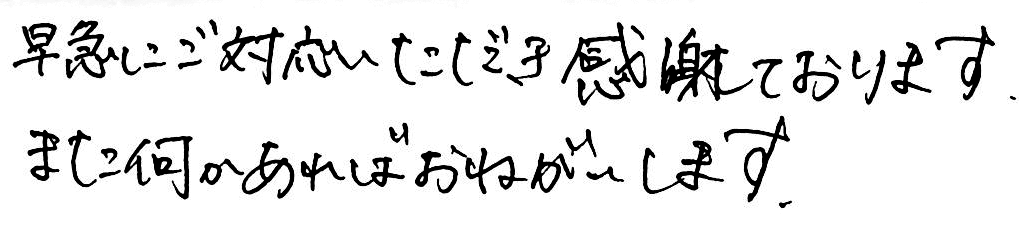 早急にご対応いただき感謝しております.
また何かあればおねがいします.